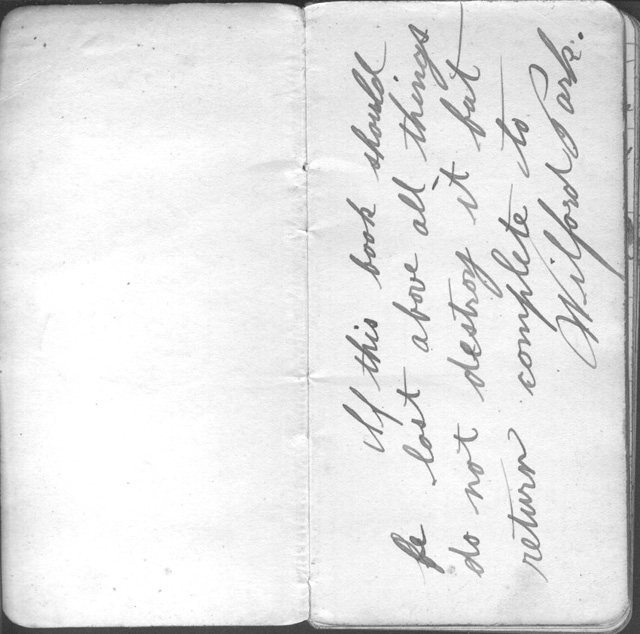 If this book should
be lost above all things
do not destroy it but
return complete to
Wilford Park.